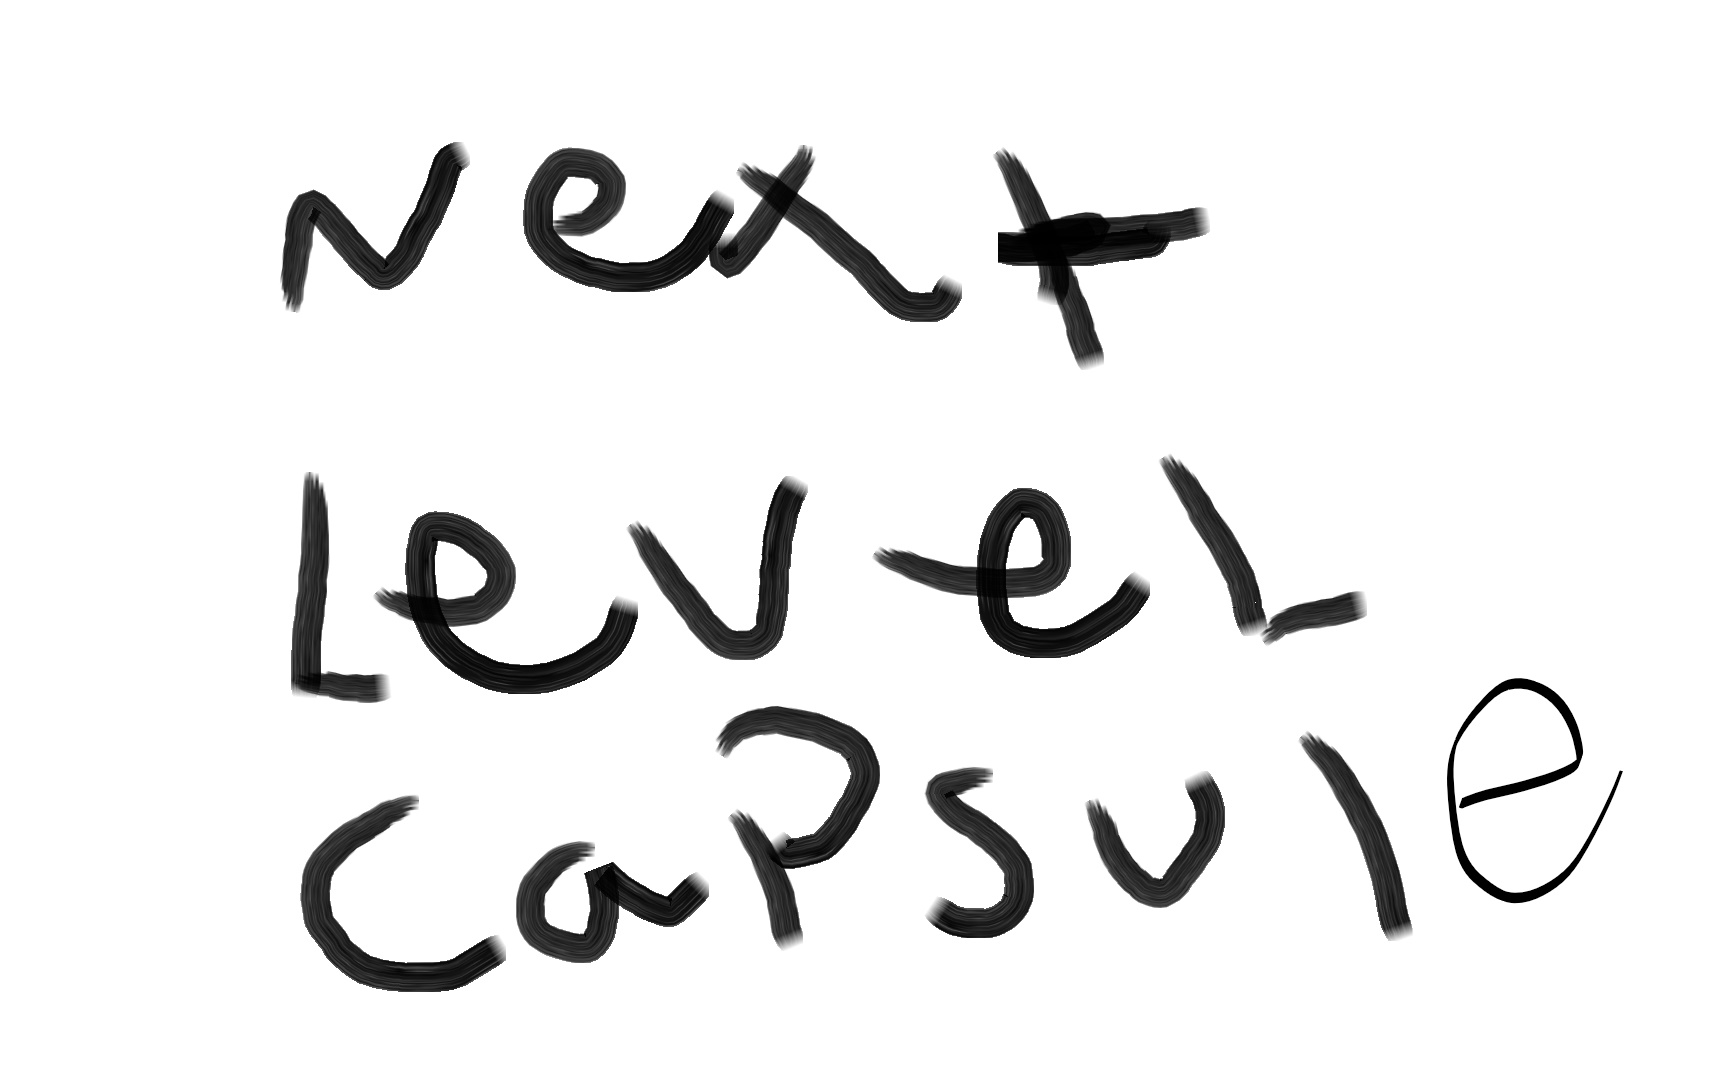 Next
Level
Capsule